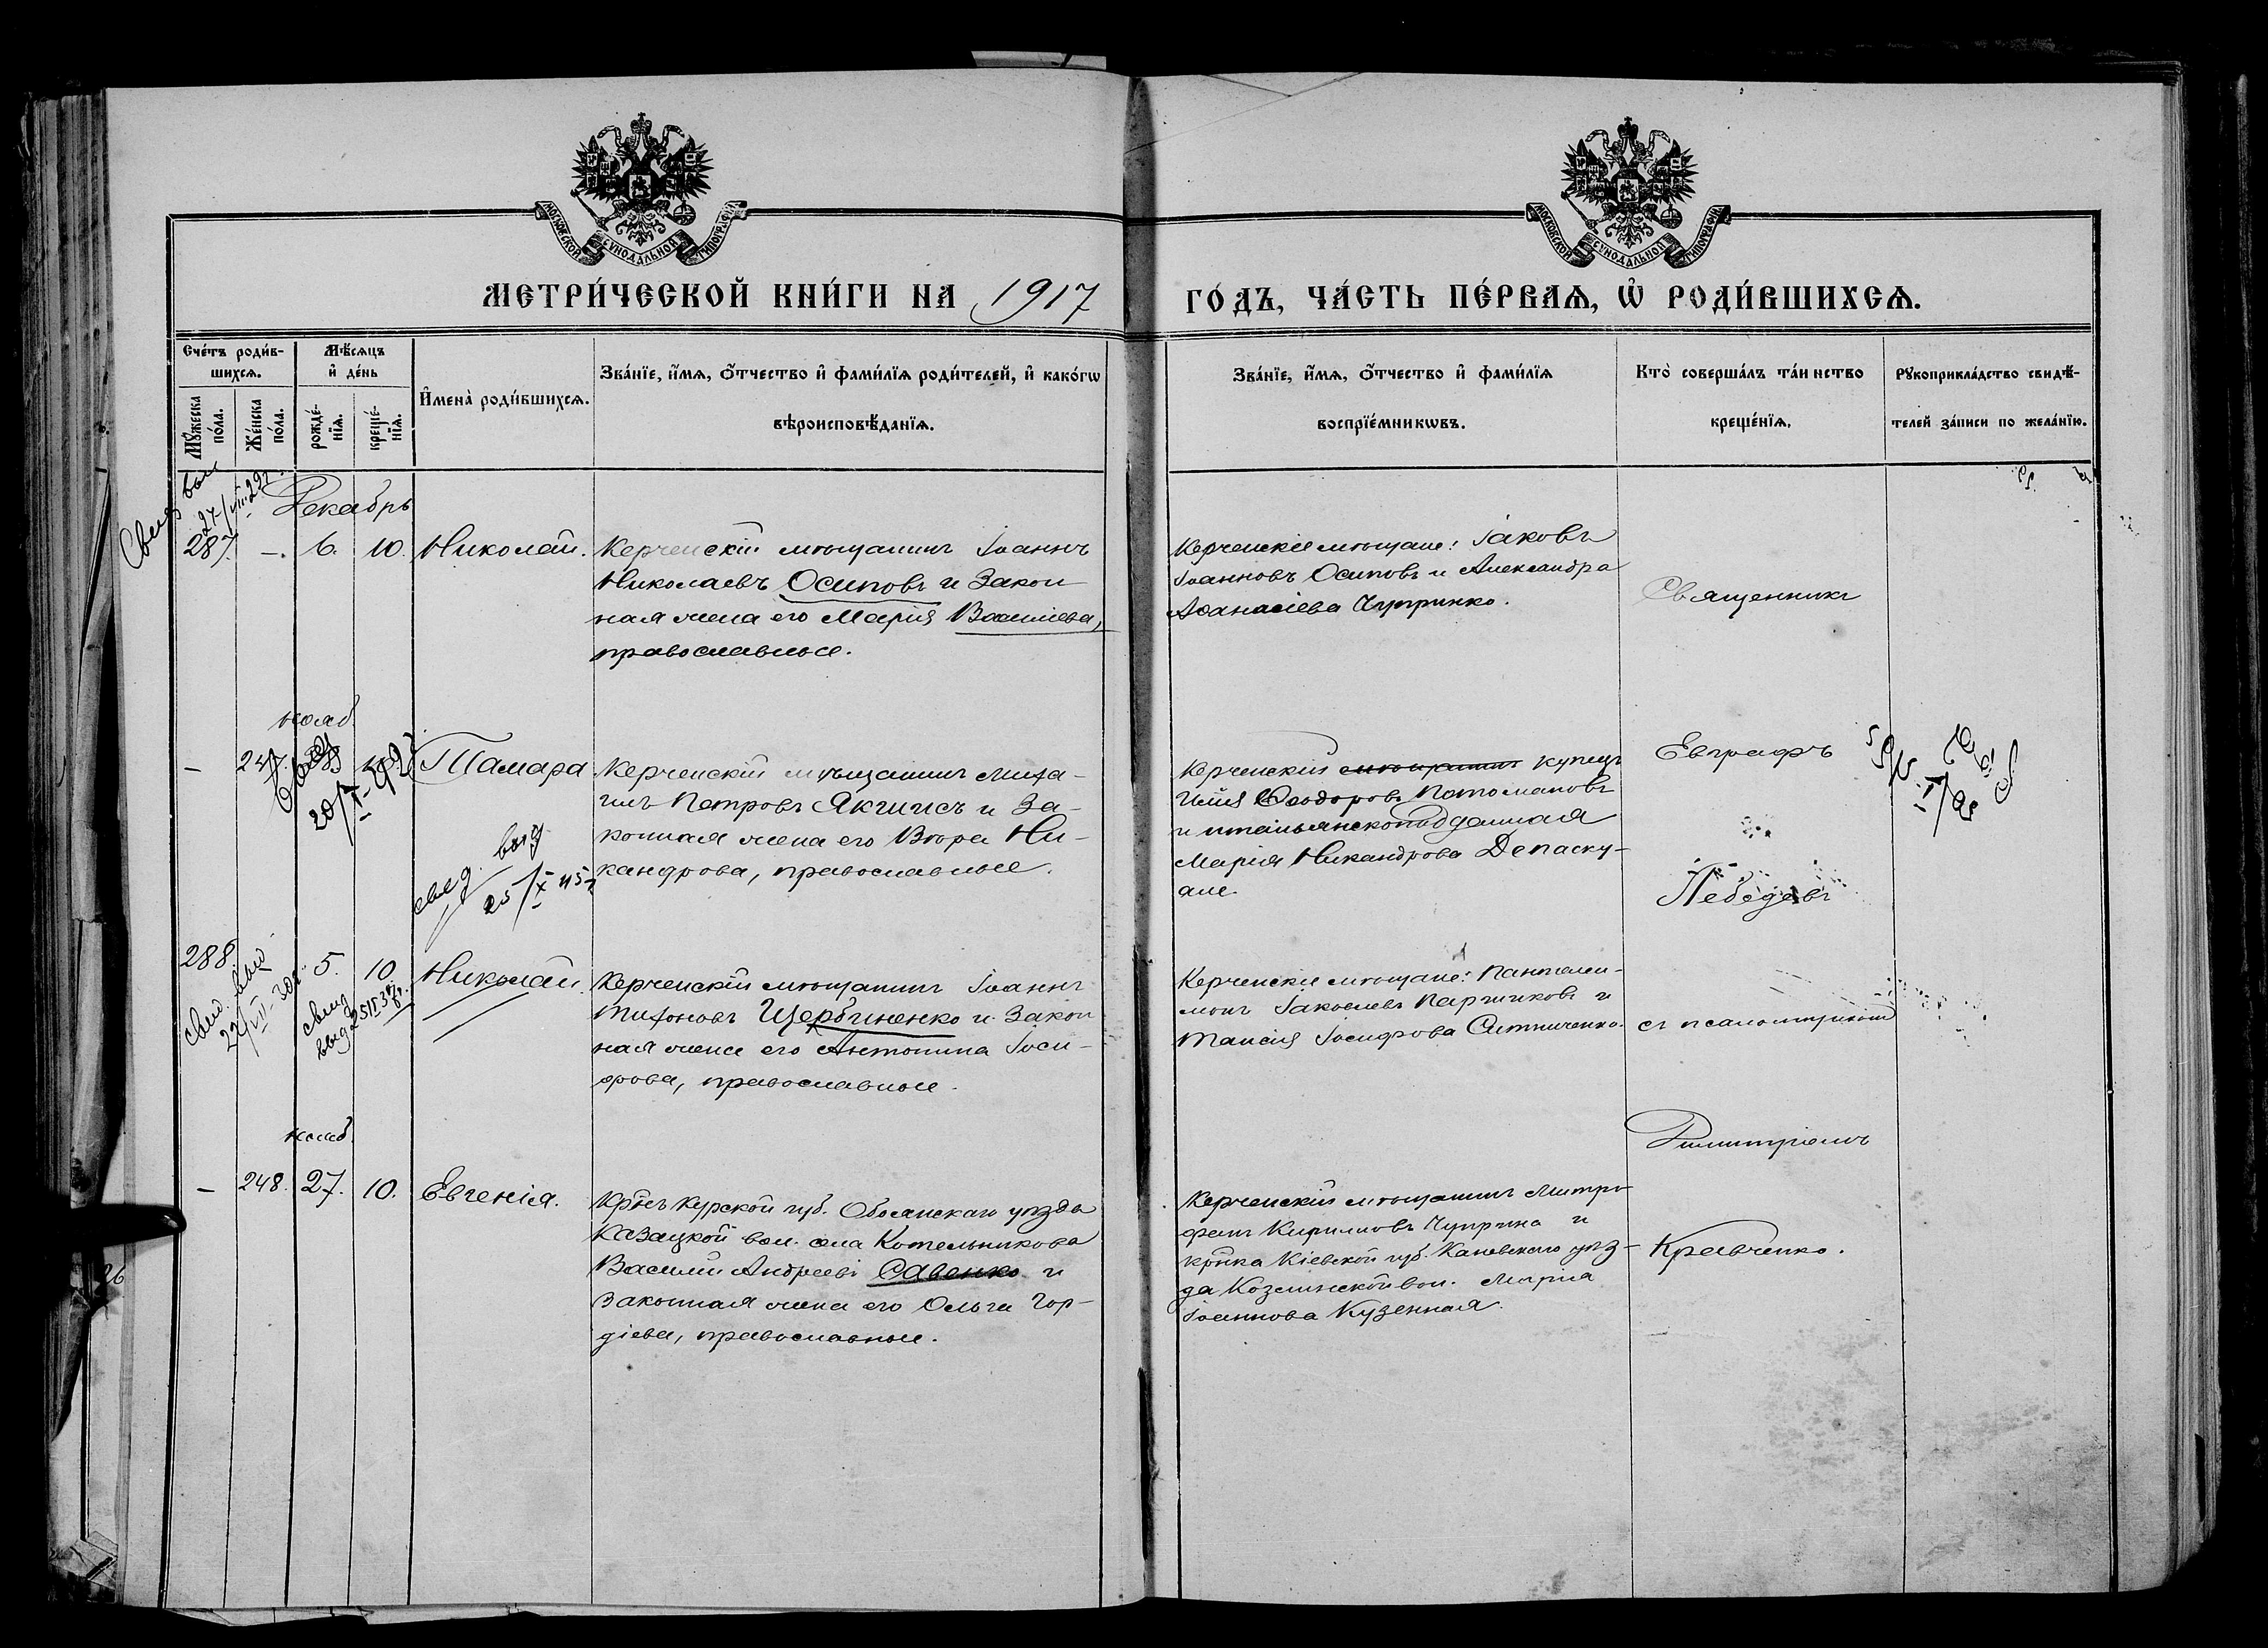 МОСКОВСКОЙ СѴНОДАЛЬНОЙ ТИПОГРАФІИ
МОСКОВСКОЙ СѴНОДАЛЬНОЙ ТИПОГРАФІИ
МЕТРИ́ЧЕСКОЙ КНИ́ГИ НА 1917
ГО́ДЪ, ЧА́СТЬ ПЕ́РВАѦ, Ѽ РОДИ́ВШИХСѦ.
Сче́тъ роди́в-
шихсѧ.
Мꙋ́жеска
по́ла.
Же́нска
по́ла.
Мѣ́сѧцъ
и҆ де́нь
рожде́-
нїѧ.
креще́-
нїѧ.
И҆мена̀ роди́вшихсѧ.
Зва́нїе, и҆́мѧ, ѻ҆́тчество и҆ фами́лїѧ роди́телей, и҆ како́гѡ
вѣроисповѣ́данїѧ.
Зва́нїе, и҆́мѧ, ѻ҆́тчество и҆ фами́лїѧ
воспрїе́мникѡвъ.
Кто̀ соверша́лъ та́инство
креще́нїѧ.
Рꙋкоприкла́дство свидѣ́-
телей за́писи по жела́нїю.
Декабрь
287. —. 6. 10. Николай.
Керченскій мѣщанинъ Іоаннъ
Николаевъ Осиповъ и закон
ная жена его Марія Васильева,
православные.
Керченскіе мѣщане: Іаковъ
Іоанновъ Осиповъ и Александра
Аѳанасіева Чупринко.
Священникъ
нояб.
— 247. Тамара
свид. выд
25/X 45
Керченскій мѣщанинъ Миха-
илъ Петровъ Якгиисъ и за-
конная жена его Вѣра Ни-
кандрова, православные.
Керченскій мѣщанинъ купецъ
Илія Ѳеодоровъ Потомановъ
и итальянскоподданная
Марія Никандрова Депаску-
але.
Евграфъ
Лебедевъ
288. 5. 10. Николай.
Керченскій мѣщанинъ Іоаннъ
Тихоновъ Щербиненко и закон
ная жена его Антонина Іоси-
фова, православные.
Керченскіе мѣщане: Пантелеи-
монъ Іаковлевъ Паршиковъ и
Таисія Іосифова Ситниченко.
съ псаломщикомъ
нояб.
— 248. 27. 10. Евгенія.
Кр̃нъ Курской губ. Обоянскаго уѣзда
Казацкой вол. села Котельникова
Василій Андреевъ Савенко и
законная жена его Ольга Гор-
діева, православные.
Керченскій мѣщанинъ Митро-
фанъ Кирилловъ Чуприна и
кр̃нка Кіевской губ. Каневскаго уѣз-
да Козинской вол. Марія
Іоаннова Кузенная.
Димитріемъ
Кравченко.